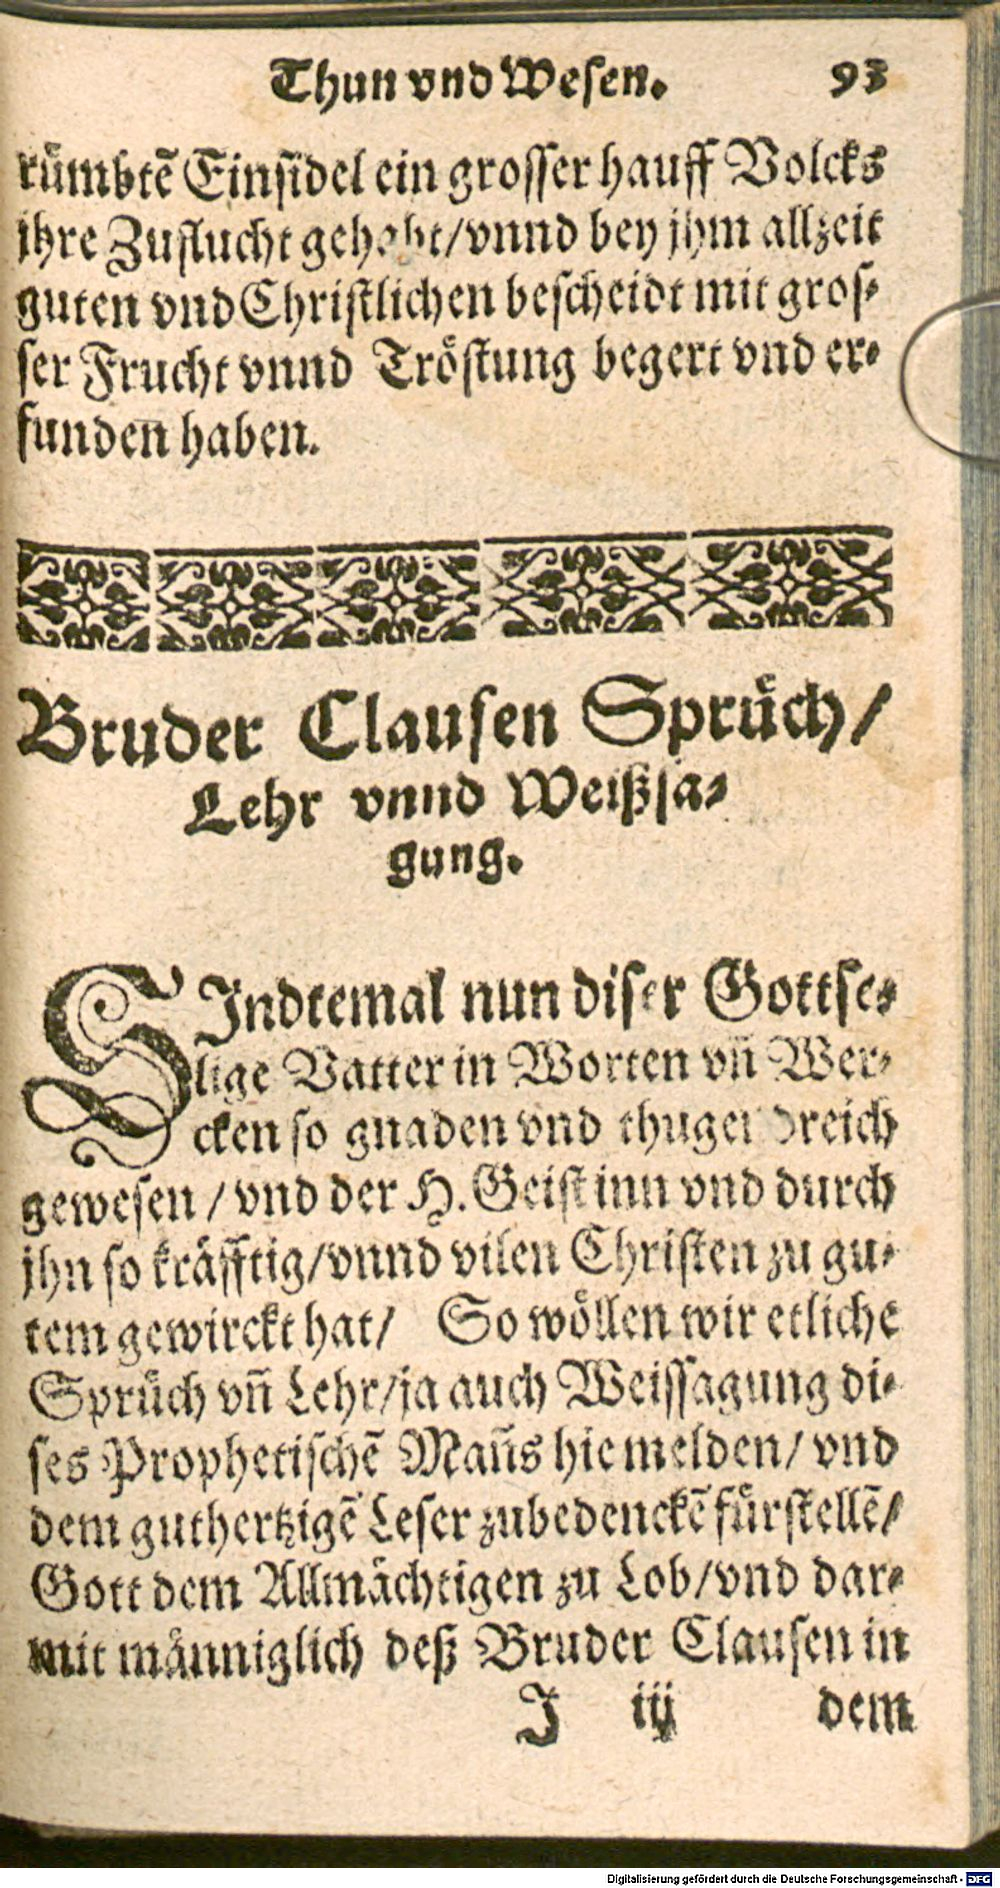 Thun vnd Wesen. 93
rümbtẽ Einsidel ein grosser hauff Volcks
jhre Zuflucht gehabt/vnnd bey jhm allzeit
guten vnd Christlichen bescheidt mit gros-
ser Frucht vnnd Tröstung begert vnd er-
funden haben.
Bruder Clausen Sprüch/
Lehr vnnd Weißsa-
gung.
SIndtemal nun diser Gottse-
lige Vatter in Worten vñ Wer-
cken so gnaden vnd thugendreich
gewesen / vnd der H. Geist inn vnd durch
jhn so kräfftig/vnnd vilen Christen zu gu-
tem gewirckt hat/ So wöllen wir etliche
Sprüch vñ Lehr/ja auch Weissagung di-
ses Prophetischẽ Mañs hie melden/ vnd
dem guthertzigẽ Leser zubedenckẽ fürstellẽ/
Gott dem Allmächtigen zu Lob/vnd dar-
mit männiglich deß Bruder Clausen in
J iij dem
Digitalisierung gefördert durch die Deutsche Forschungsgemeinschaft - DFG